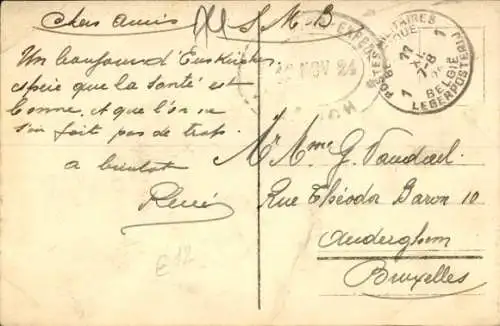 Chers amis
S. M. B
Un bonjour d'Euskirchen
espère que la santé est
bonne. et que l'on ne
s'en fait pas de trop.
a bientot
René
E12
NOV 24
POSTES MILITAIRES
BELGIQUE
1 11 1
XI
7-8
BELGIE
LEGERPOSTERIJ
Mr Mme G. Vandael
Rue Théodor Baron 10
Auderghem
Bruxelles